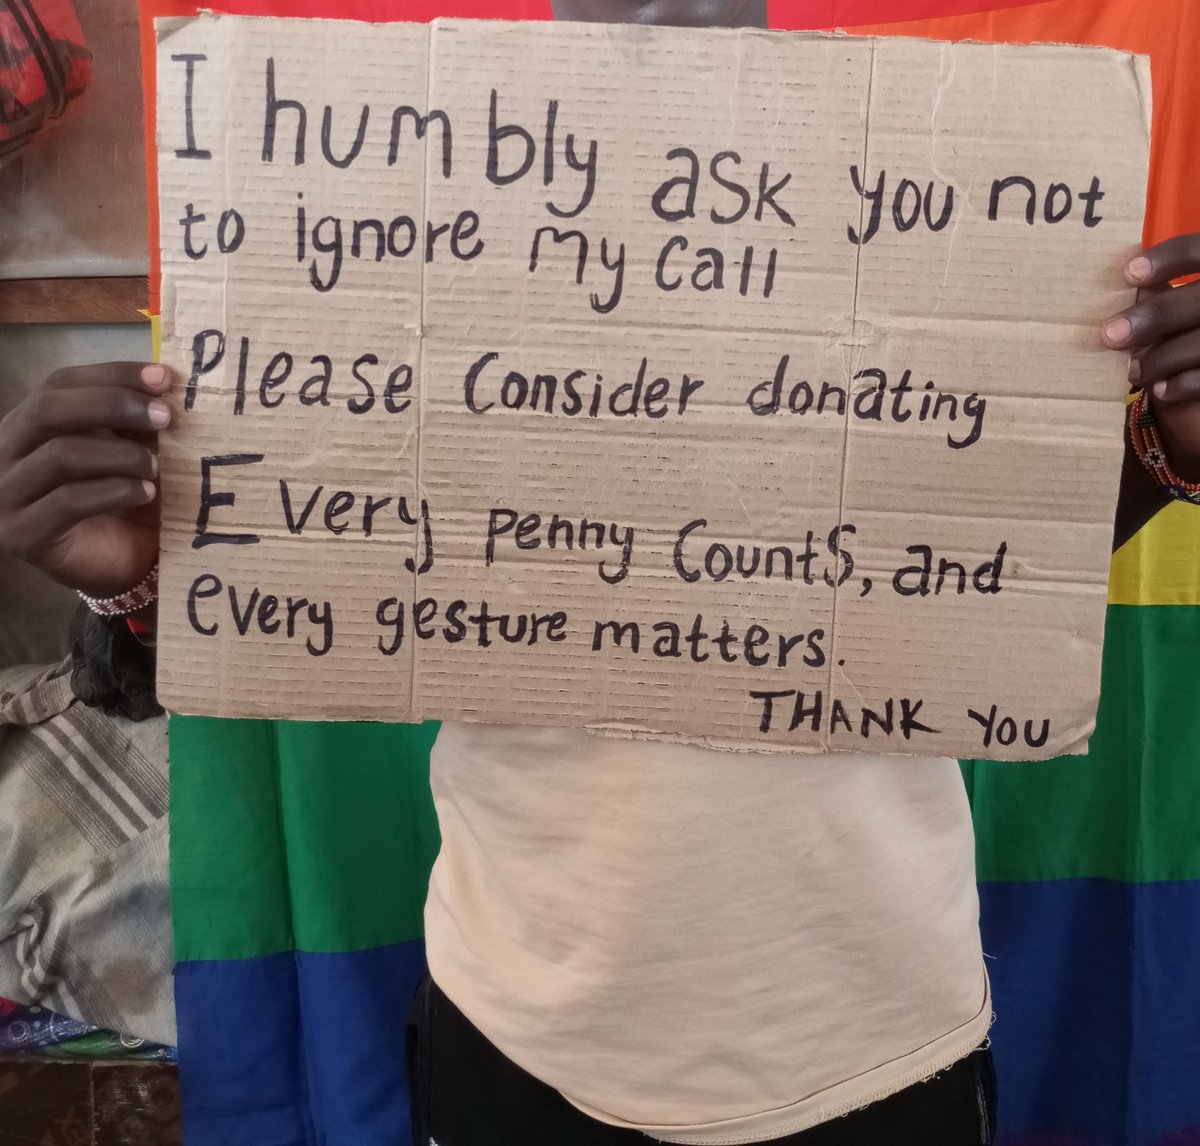 I humbly ask you not
to ignore my call
Please Consider donating
Every penny Counts, and
every gesture matters.
THANK YOU